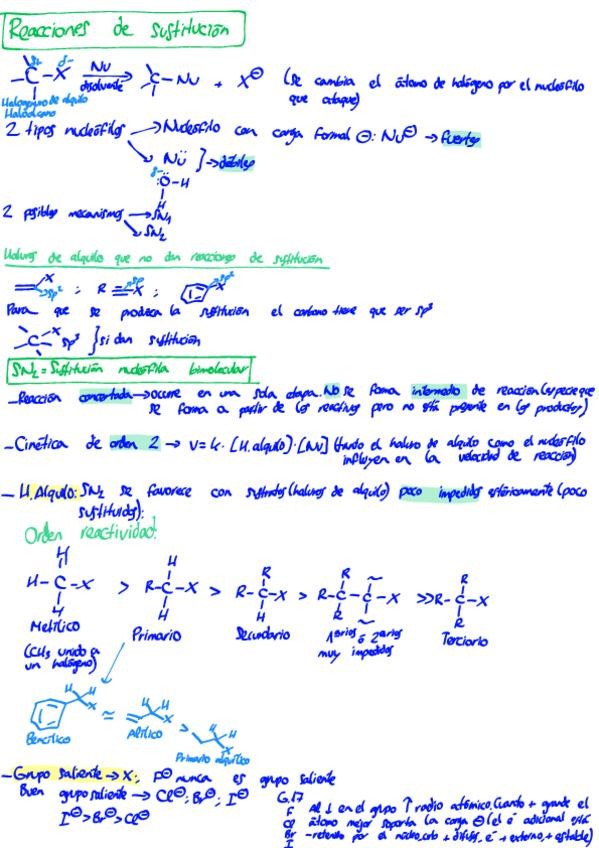 Reacciones de sustitución
-C-X Nu disolvente → -C-Nu + X⊖ (se cambia el átomo de halógeno por el nucleófilo
δ+ δ-
que ataque)
Halogenuro de alquilo
Haloalcano
2 tipos nucleófilos → Nucleófilo con carga formal ⊖: Nu⊖ → fuertes
Nü } → débiles
δ- Ö-H
H
2 posibles mecanismos → SN1
SN2
Haluros de alquilo que no dan reacciones de sustitución
X sp² ; R≡X sp ; X sp²
Para que se produzca la sustitución el carbono tiene que ser sp³
C-X sp³ } si dan sustitución
SN2 = Sustitución nucleófila bimolecular
-Reacción concertada → ocurre en una sola etapa. No se forma intermedio de reacción (especie que
se forma a partir de los reactivos pero no está presente en los productos)
-Cinética de orden 2 → v = k · [H. alquilo] · [Nu] (tanto el haluro de alquilo como el nucleófilo
influyen en la velocidad de reacción)
-H. Alquilo: SN2 se favorece con sustratos (haluros de alquilo) poco impedidos estéricamente (poco
sustituidos):
Orden reactividad:
H R R R
H H R
H-C-X > R-C-X > R-C-X > R-C-C-X >> R-C-X
H H H R R
Metílico Primario Secundario 1arios ó 2arios Terciario
muy impedidos
(CH3 unido a
un halógeno)
H H X ≈ H H X > H H X
Bencílico Alílico Primario alquílico
-Grupo saliente → X: F⊖ nunca es grupo saliente
Buen grupo saliente → Cl⊖; Br⊖; I⊖
I⊖ > Br⊖ > Cl⊖
G.17
F Al ↓ en el grupo ↑ radio atómico. Cuando + grande el
Cl átomo mejor soporta la carga ⊖ (el e⁻ adicional está
Br -retenido por el núcleo, orb + difuso, e⁻ + externo, + estable)
I